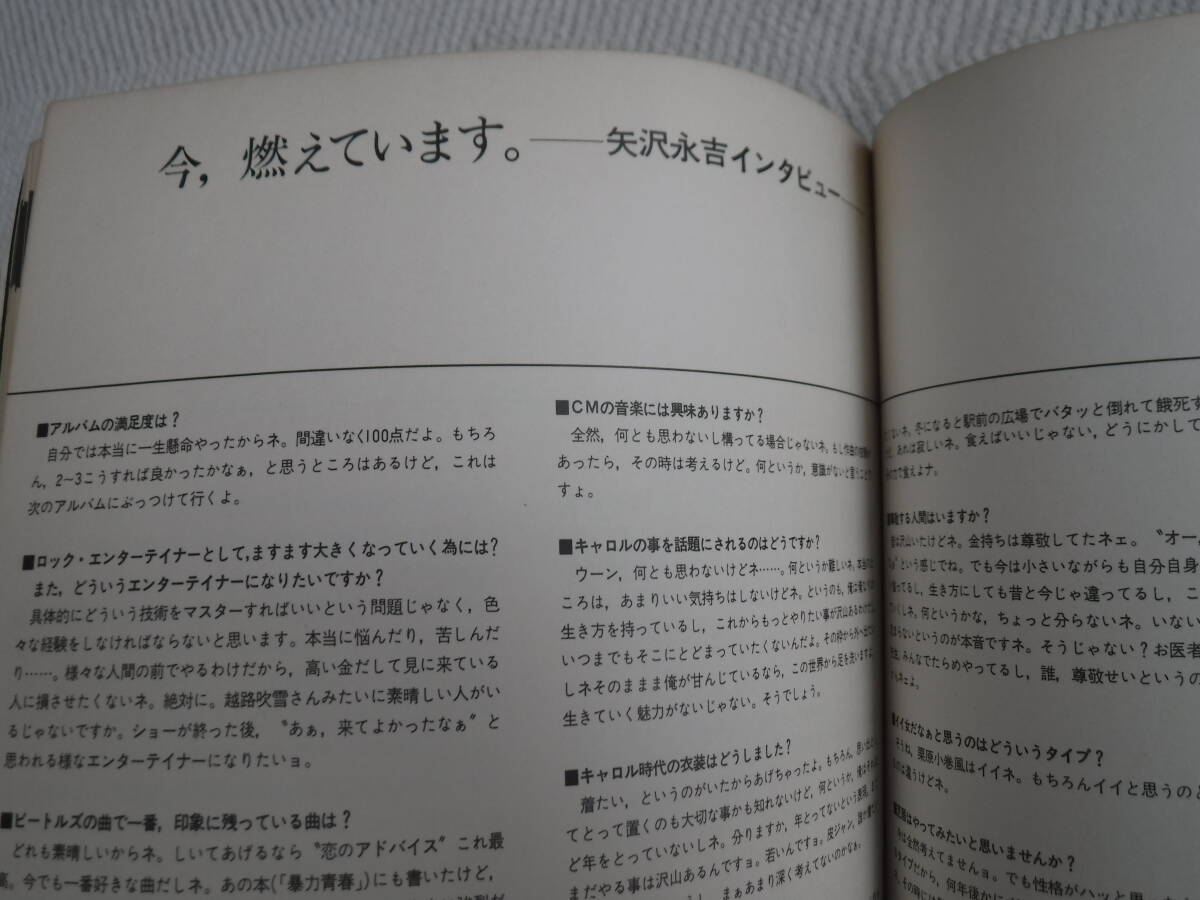 今，燃えています。──矢沢永吉インタビュー──
■アルバムの満足度は？
自分では本当に一生懸命やったからネ。間違いなく100点だよ。もちろ
ん，2~3こうすれば良かったかなぁ，と思うところはあるけど，これは
次のアルバムにぶっつけて行くよ。
■ロック・エンターテイナーとして，ますます大きくなっていく為には？
また，どういうエンターテイナーになりたいですか？
具体的にどういう技術をマスターすればいいという問題じゃなく，色
々な経験をしなければならないと思います。本当に悩んだり，苦しんだ
り……。様々な人間の前でやるわけだから，高い金だして見に来ている
人に損させたくないネ。絶対に。越路吹雪さんみたいに素晴しい人がい
るじゃないですか。ショーが終った後，〝あぁ，来てよかったなぁ〟と
思われる様なエンターテイナーになりたいョ。
■ビートルズの曲で一番，印象に残っている曲は？
どれも素晴しいからネ。しいてあげるなら〝恋のアドバイス〟これ最
高。今でも一番好きな曲だしネ。あの本(「暴力青春」)にも書いたけど，
■CMの音楽には興味ありますか？
全然，何とも思わないし構ってる場合じゃないネ。もし作曲の
あったら，その時は考えるけど。何というか，意識がないと言うことで
すょ。
■キャロルの事を話題にされるのはどうですか？
ウーン，何とも思わないけどネ……。何というか難しいネ。本当の
ころは，あまりいい気持ちはしないけどネ。というのも，俺は俺な
生き方を持っているし，これからもっとやりたい事が沢山あるわけだ
いつまでもそこにとどまっていたくないんだよ。その枠から外へ出たい
しネそのまま俺が甘んじているなら，この世界から足を洗いますよ
生きていく魅力がないじゃない。そうでしょう。
■キャロル時代の衣装はどうしました？
着たい，というのがいたからあげちゃったよ。もちろん，思い出とし
てとって置くのも大切な事かも知れないけど，何というか，俺は
ど年をとっていないしネ。分りますか，年とってないという表現。まだ
まだやる事は沢山あるんですョ。若いんですョ。皮ジャン，
まぁあまり深く考えてないのかなぁ。
ないネ。冬になると駅前の広場でバタッと倒れて餓死す
あれは寂しいネ。食えばいいじゃない，どうにかして
で食えよナ。
する人間はいますか？
は沢山いたけどネ。金持ちは尊敬してたネェ。〝オー，
という感じでね。でも今は小さいながらも自分自身
ってるし，生き方にしても昔と今じゃ違ってるし，こ
くしネ。何というかな，ちょっと分らないネ。いない
らないというのが本音ですネ。そうじゃない？お医者
みんなでたらめやってるし，誰，尊敬せいというの
■イイ女だなぁと思うのはどういうタイプ？
そうね，栗原小巻風はイイネ。もちろんイイと思うのと
のは違うけどネ。
はやってみたいと思いませんか？
は全然考えてませんョ。でも性格がハッと
タイプだから，何年後かに